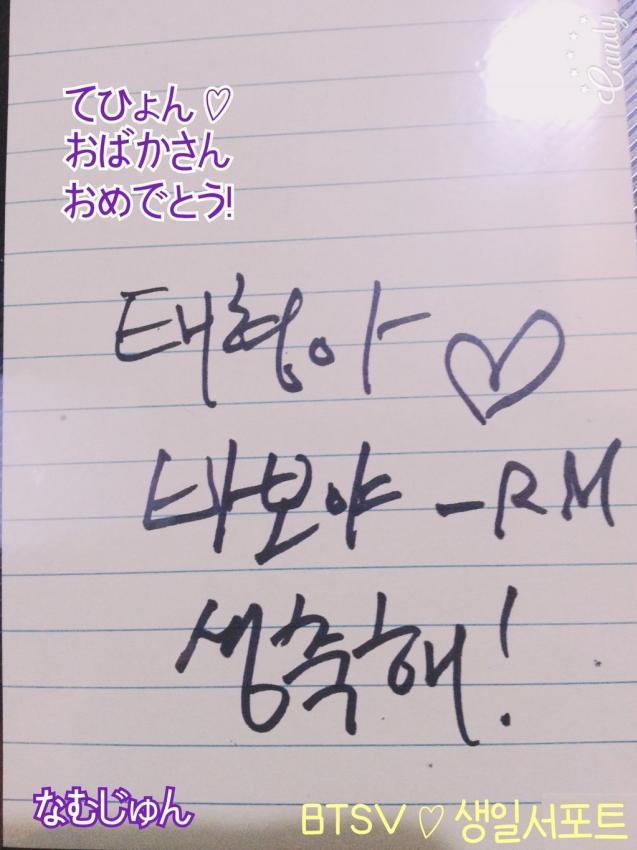 Candy
てひょん♡
おばかさん
おめでとう!
태형아 ♡
타보야 -RM
생축해!
なむじゅん
BTSV♡생일서포트